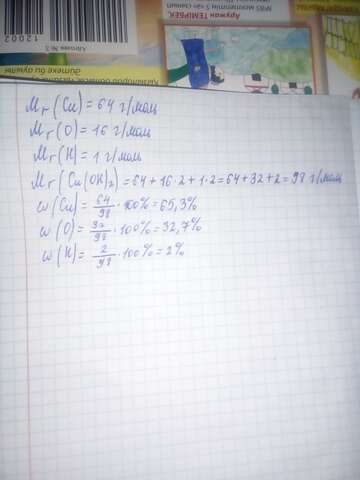 12002
Аружан ТЕМІРБЕК,
Mr(Cu)=64 г/моль
Mr(O)=16 г/моль
Mr(H)=1 г/моль
Mr(Cu(OH)2)=64+16·2+1·2=64+32+2=98 г/моль
ω(Cu)=64/98·100%=65,3%
ω(O)=32/98·100%=32,7%
ω(H)=2/98·100%=2%